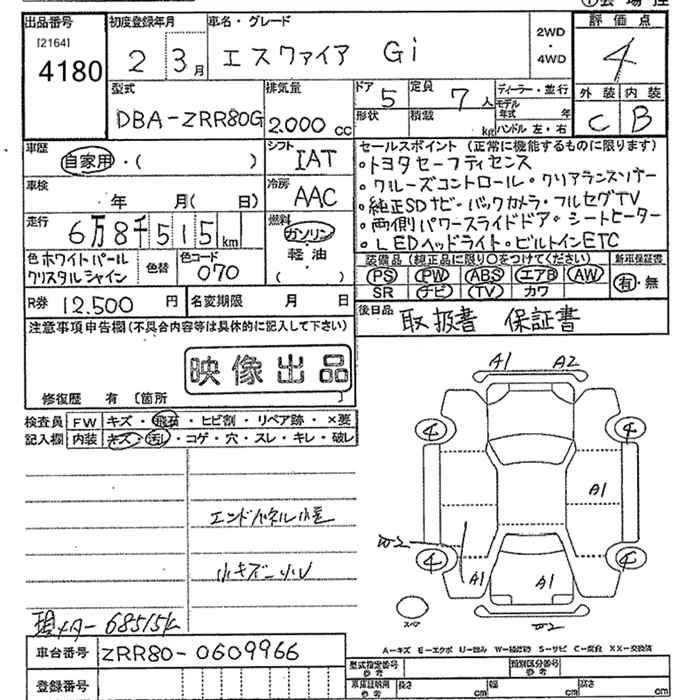 出品番号 初度登録年月 車名・グレード 2WD・4WD 評価点
[2164] 4180 2 3月 エスクァイア Gi 4
型式 排気量 ドア 5 定員 7人 ディーラー・並行 外装 内装
DBA-ZRR80G 2,000cc 形状 積載 kg モデル年式 年 ハンドル 左・右 C B
車歴 シフト セールスポイント (正常に機能するものに限ります)
自家用・( ) IAT ・トヨタセーフティセンス
車検 年 月( 日) 冷房 AAC ・クルーズコントロール・クリアランスソナー
・純正SDナビ・バックカメラ・フルセグTV
走行 6万8千515km 燃料 ガソリン ・両側パワースライドドア・シートヒーター
軽油 ( ) ・LEDヘッドライト・ビルトインETC
色 ホワイトパールクリスタルシャイン 色替 色コード 070 装備品 (純正品に限り○をつけてください) 新車保証書
PS PW ABS エアB AW 有・無
SR ナビ TV カワ
R券 12,500円 名変期限 月 日 後日品 取扱書 保証書
注意事項申告欄(不具合内容等は具体的に記入して下さい)
映像出品
修復歴 有 〔箇所
検査員 FW キズ・飛石・ヒビ割・リペア跡・×要
記入欄 内装 キズ・汚れ・コゲ・穴・スレ・キレ・破レ
A1 A2
4 4
A1
エンドパネル
4 4
A1 A1
スペア
現メーター 68515k
A=キズ E=エクボ U=凹み W=補修跡 S=サビ C=腐食 XX=交換済
車台番号 ZRR80-0609966
登録番号
型式指定番号 参考 類別区分番号 参考
車庫証明用 参考 長さ cm 幅 cm 高さ cm